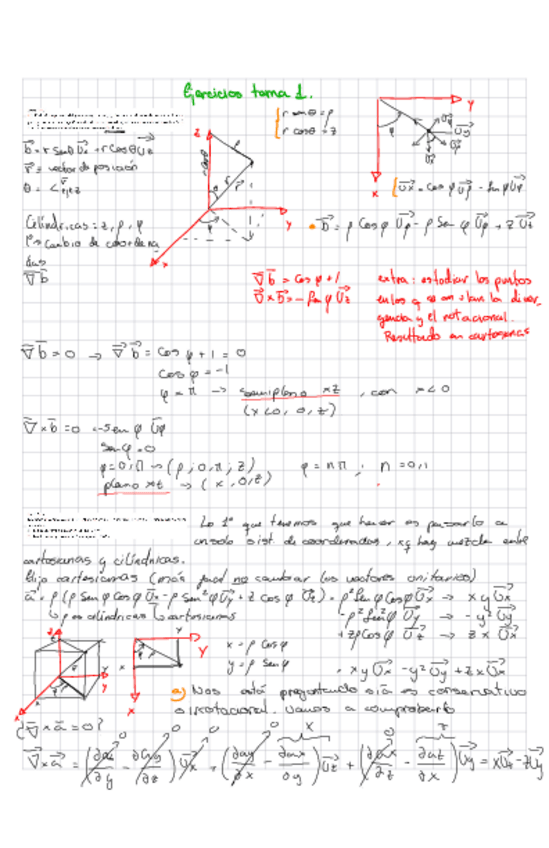 Ejercicios tema 1.
b = r senθ Ux + r cosθ Uz
r = vector de posición
θ = ∠ r, z
r senθ = ρ
r cosθ = z
z
y
x
y
x
Ux = cos φ Uρ - sen φ Uφ
Cilíndricas: z, ρ, φ
cambio de coordena
das
∇b
b = ρ cos φ Uρ - ρ sen φ Uφ + z Uz
∇b = cos φ + 1
∇×b = - sen φ Uz
extra: estudiar los puntos
en los q se anulan la diver-
gencia y el rotacional.
Resultado en cartesianas
∇b = 0 → ∇b = cos φ + 1 = 0
cos φ = -1
φ = π → semiplano xz , con x<0
(x<0, 0, z)
∇×b = 0 -sen φ
sen φ = 0
φ = 0, π → (ρ, 0, π, z) φ = nπ ; n = 0, 1
plano xz → (x, 0, z)
Lo 1º que tenemos que hacer es pasarlo a
un solo sist. de coordenadas, xq hay mezcla entre
cartesianas y cilíndricas.
Elijo cartesianas (más fácil no cambiar los vectores unitarios)
a = ρ (ρ sen φ cos φ Ux - ρ sen² φ Uy + z cos φ Uz) = ρ² sen φ cos φ Ux → xy Ux
cilíndricas cartesianas
-ρ² sen² φ Uy → -y² Uy
+zρ cos φ Uz → zx Ux
x = ρ cos φ
y = ρ sen φ
xy Ux - y² Uy + zx Ux
a) Nos está preguntando si a es conservativo
o irrotacional. Vamos a comprobarlo
¿∇×a = 0?
∇×a = (∂az/∂y - ∂ay/∂z) Ux + (∂ay/∂x - ∂ax/∂y) Uz + (∂ax/∂z - ∂az/∂x) Uy = xUz - zUy